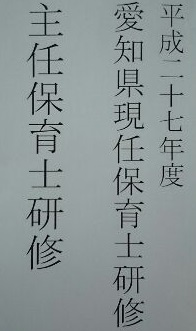 平成二十七年度
愛知県現任保育士研修
主任保育士研修